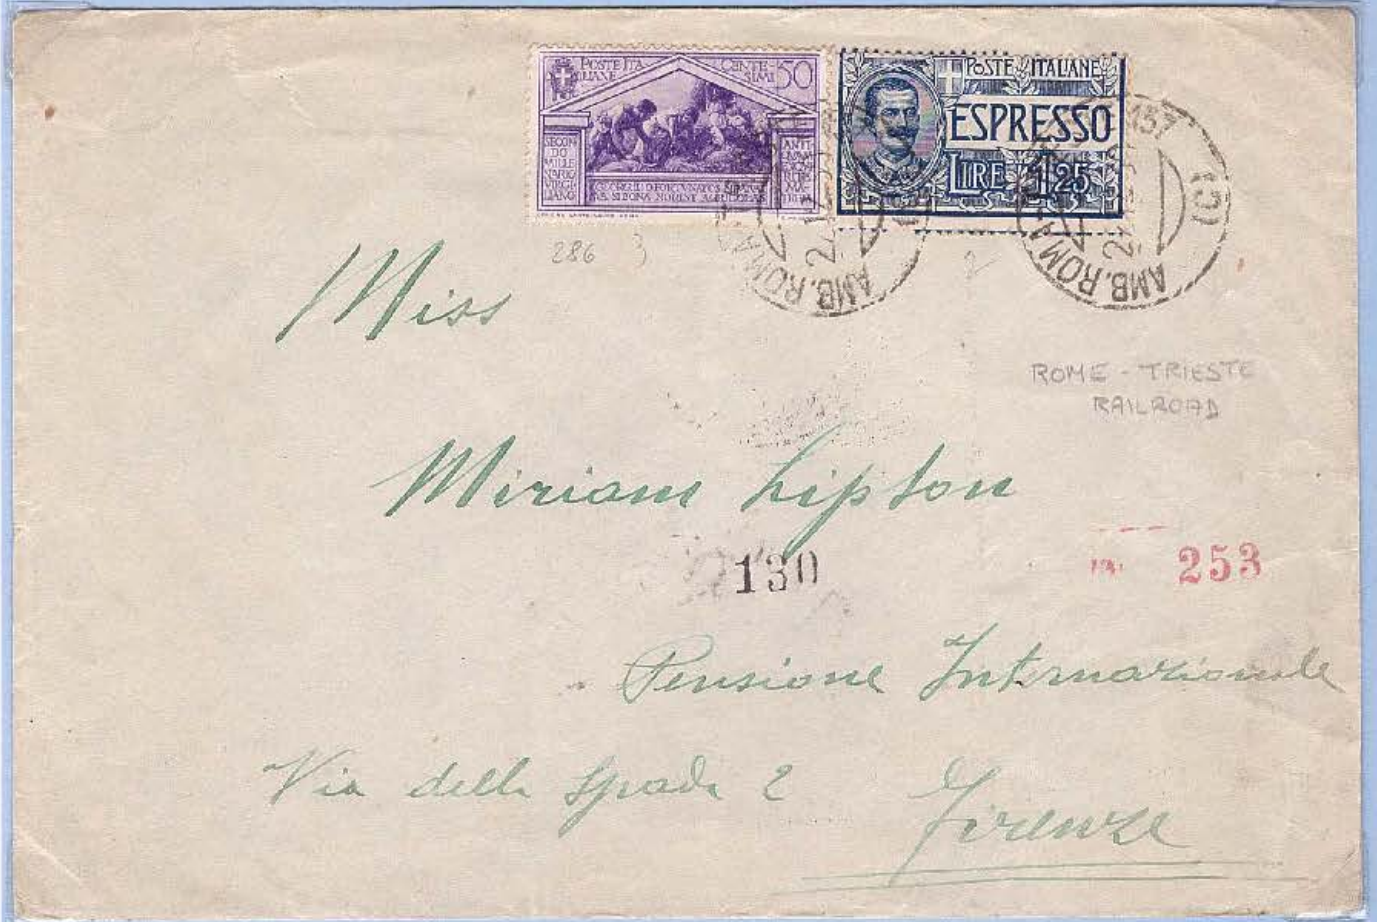 POSTE ITALIANE
CENTESIMI 50
SECONDO MILLENARIO VIRGILIANO
POSTE ITALIANE
ESPRESSO
LIRE 1,25
AMB. ROMA
AMB. ROMA
157
(C)
286 3
2
Miss
ROME - TRIESTE
RAILROAD
Miriam Lipton
130
253
Pensione Internazionale
Via della Spada 2 Firenze